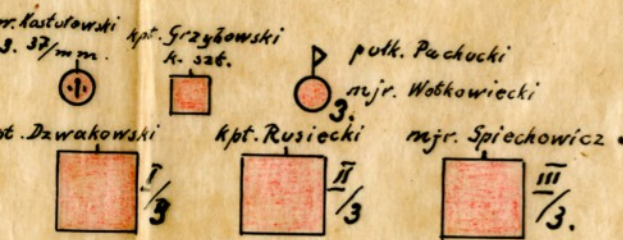 r. Kasturowski
3. 37/mm.
kpt. Grzybowski
k. szt.
pułk. Pachucki
mjr. Wotkowiecki
3.
pt. Dzwakowski
kpt. Rusiecki
mjr. Spiechowicz
I/3
II/3
III/3.